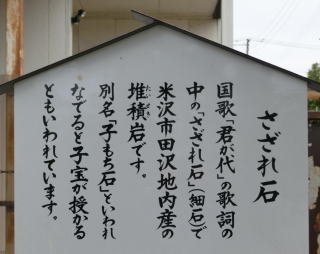 さざれ石
国歌「君が代」の歌詞の
中の「さざれ石」(細石)で
米沢市田沢地内産の
堆積岩です。
たいせき
別名「子もち石」といわれ
なでると子宝が授かる
ともいわれています。